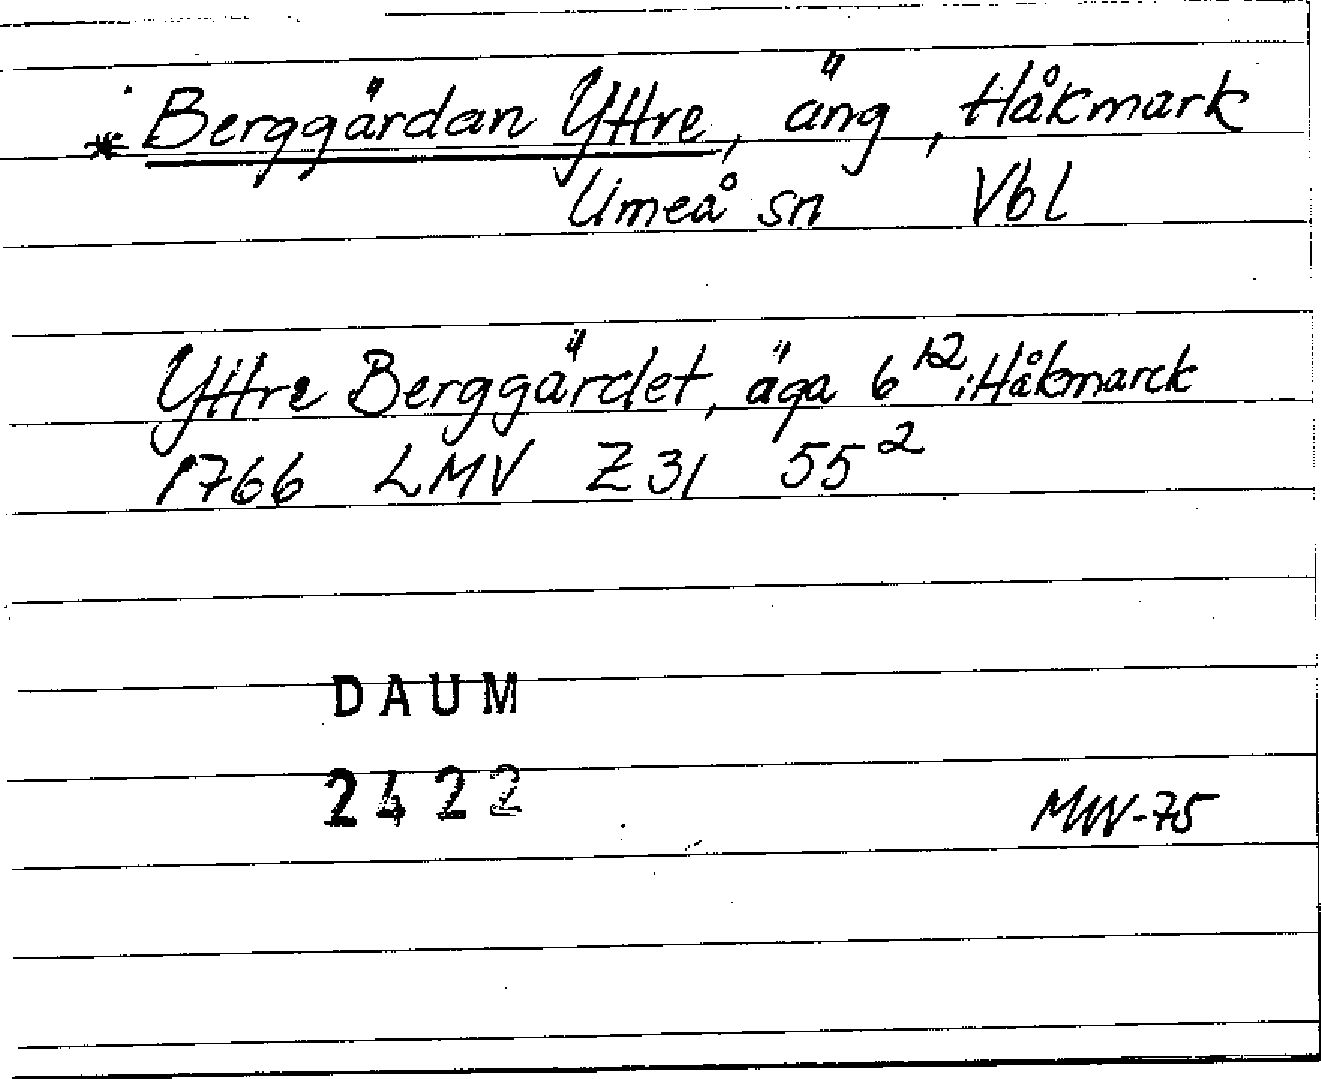 * Berggärdan Yttre, äng, Håkmark
Umeå sn Vbl
Yttre Berggärdet, äga 6¹² i Håkmarck
1766 LMV Z31 55²
DAUM
2422
MW-75